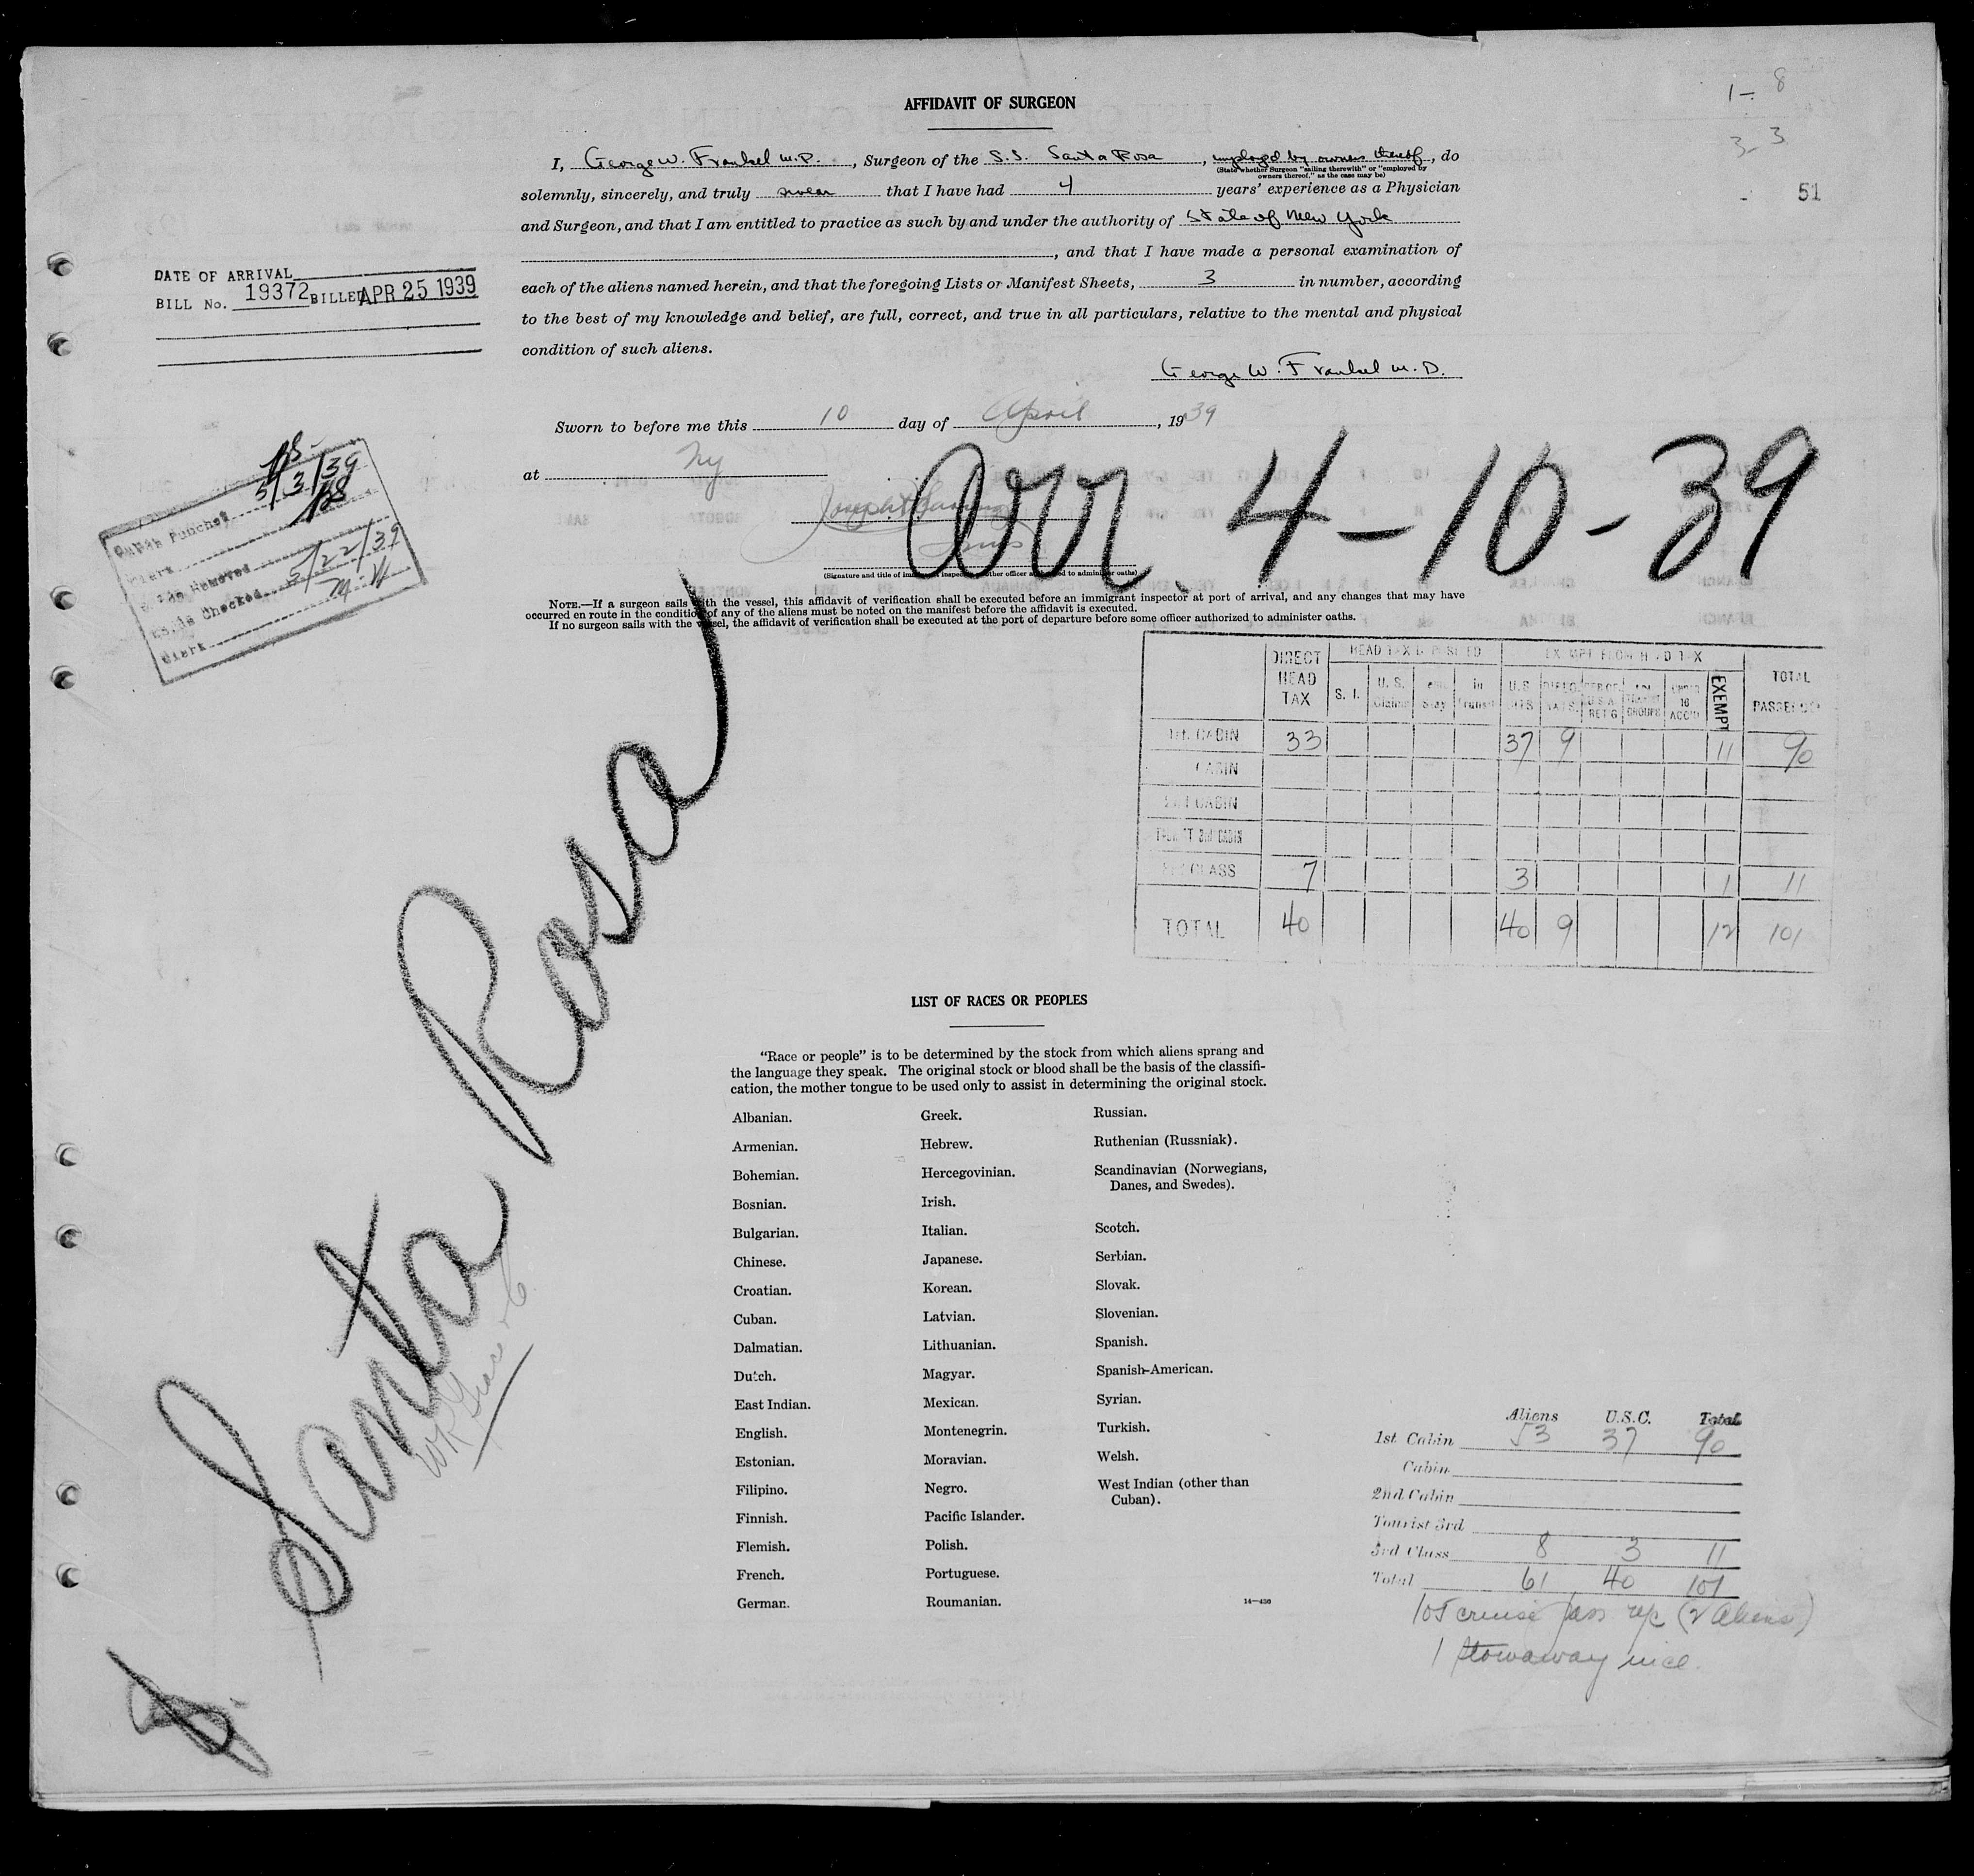 AFFIDAVIT OF SURGEON
1- 8
3- 3
51
I, George W. Frankel M.D., Surgeon of the S.S. Santa Rosa, employed by owners thereof, do
(State whether Surgeon "sailing therewith" or "employed by owners thereof," as the case may be)
solemnly, sincerely, and truly swear that I have had 4 years' experience as a Physician
and Surgeon, and that I am entitled to practice as such by and under the authority of State of New York
, and that I have made a personal examination of
each of the aliens named herein, and that the foregoing Lists or Manifest Sheets, 3 in number, according
to the best of my knowledge and belief, are full, correct, and true in all particulars, relative to the mental and physical
condition of such aliens.
George W. Frankel M.D.
DATE OF ARRIVAL
BILL No. 19372 BILLED APR 25 1939
Sworn to before me this 10 day of April, 1939
at NY
Arr. 4-10-39
(Signature and title of immigrant inspector or other officer authorized to administer oaths)
Punched 5/3/39
Clerk
Removed
Checked 5/22/39
Clerk
NOTE.—If a surgeon sails with the vessel, this affidavit of verification shall be executed before an immigrant inspector at port of arrival, and any changes that may have
occurred en route in the condition of any of the aliens must be noted on the manifest before the affidavit is executed.
If no surgeon sails with the vessel, the affidavit of verification shall be executed at the port of departure before some officer authorized to administer oaths.
Santa Rosa
WR Grace & Co
DIRECT HEAD TAX HEAD TAX DEPOSITED EXEMPT FROM HEAD TAX TOTAL PASSENGERS
S. I. U. S. in Transit U.S. EXEMPT
1st. CABIN 33 37 9 11 90
CABIN
2nd CABIN
TOURIST 3rd CABIN
3rd CLASS 7 3 1 11
TOTAL 40 40 9 12 101
LIST OF RACES OR PEOPLES
"Race or people" is to be determined by the stock from which aliens sprang and
the language they speak. The original stock or blood shall be the basis of the classifi-
cation, the mother tongue to be used only to assist in determining the original stock.
Albanian.
Armenian.
Bohemian.
Bosnian.
Bulgarian.
Chinese.
Croatian.
Cuban.
Dalmatian.
Dutch.
East Indian.
English.
Estonian.
Filipino.
Finnish.
Flemish.
French.
German.
Greek.
Hebrew.
Hercegovinian.
Irish.
Italian.
Japanese.
Korean.
Latvian.
Lithuanian.
Magyar.
Mexican.
Montenegrin.
Moravian.
Negro.
Pacific Islander.
Polish.
Portuguese.
Roumanian.
Russian.
Ruthenian (Russniak).
Scandinavian (Norwegians,
Danes, and Swedes).
Scotch.
Serbian.
Slovak.
Slovenian.
Spanish.
Spanish-American.
Syrian.
Turkish.
Welsh.
West Indian (other than
Cuban).
14—430
Aliens U.S.C. Total
1st Cabin 53 37 90
Cabin
2nd Cabin
Tourist 3rd
3rd Class 8 3 11
Total 61 40 101
105 cruise pass (2 aliens)
1 stowaway